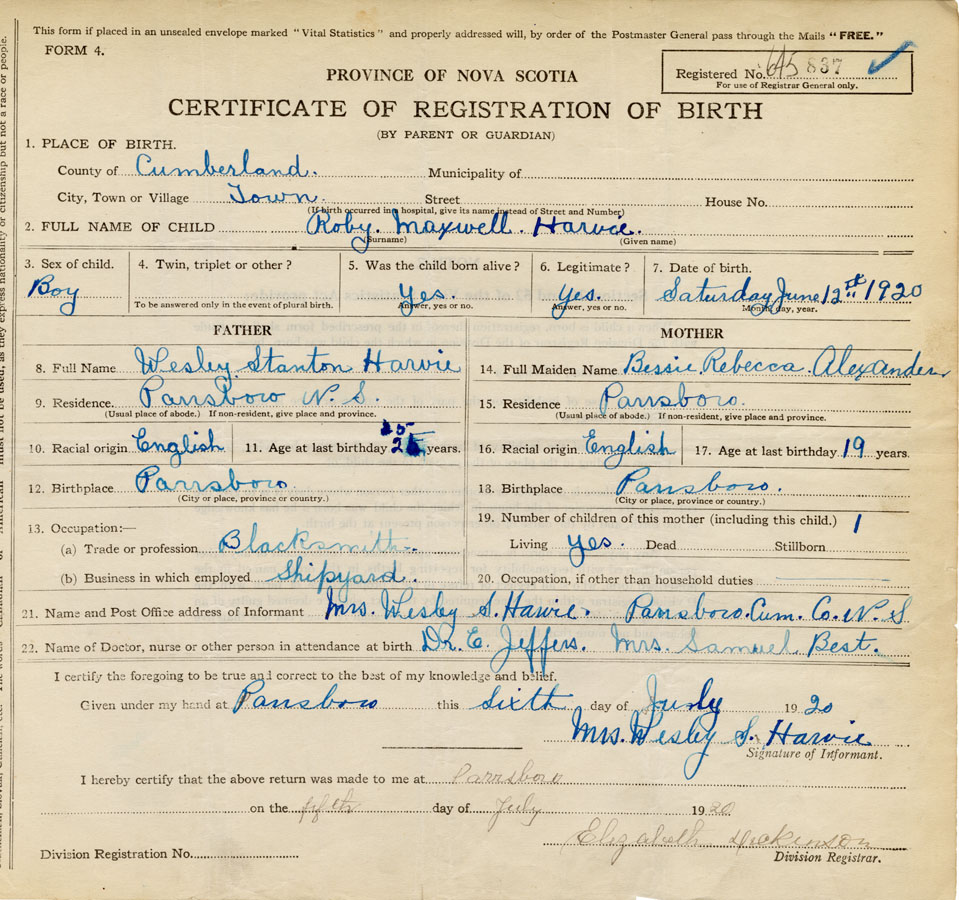 This form if placed in an unsealed envelope marked "Vital Statistics" and properly addressed will, by order of the Postmaster General pass through the Mails "FREE."
FORM 4.
Registered No. 645837
For use of Registrar General only.
PROVINCE OF NOVA SCOTIA
CERTIFICATE OF REGISTRATION OF BIRTH
(BY PARENT OR GUARDIAN)
1. PLACE OF BIRTH.
County of Cumberland. Municipality of
City, Town or Village Town. Street House No.
(If birth occurred in a hospital, give its name instead of Street and Number)
2. FULL NAME OF CHILD Roby. Maxwell. Harvie.
(Surname) (Given name)
3. Sex of child. 4. Twin, triplet or other? 5. Was the child born alive? 6. Legitimate? 7. Date of birth.
Boy Yes. Yes. Saturday June 12th 1920
To be answered only in the event of plural birth. Answer, yes or no. Answer, yes or no. Month, day, year.
FATHER MOTHER
8. Full Name Wesley. Stanton Harvie 14. Full Maiden Name Bessie Rebecca. Alexander
9. Residence Parrsboro N. S. 15. Residence Parrsboro.
(Usual place of abode.) If non-resident, give place and province. (Usual place of abode.) If non-resident, give place and province.
10. Racial origin English 11. Age at last birthday 25 years. 16. Racial origin English 17. Age at last birthday 19 years.
12. Birthplace Parrsboro 18. Birthplace Parrsboro.
(City or place, province or country.) (City or place, province or country.)
13. Occupation:— 19. Number of children of this mother (including this child.) 1
(a) Trade or profession Blacksmith. Living yes. Dead Stillborn
(b) Business in which employed Shipyard. 20. Occupation, if other than household duties
21. Name and Post Office address of Informant Mrs. Wesley S. Harvie. Parrsboro. Cum. Co. N. S
22. Name of Doctor, nurse or other person in attendance at birth Dr. E. Jeffers. Mrs. Samuel Best.
I certify the foregoing to be true and correct to the best of my knowledge and belief.
Given under my hand at Parrsboro this Sixth day of July 1920
Mrs. Wesley S. Harvie
Signature of Informant.
I hereby certify that the above return was made to me at Parrsboro
on the fifth day of July 1920
Elizabeth Dickinson
Division Registration No. Division Registrar.